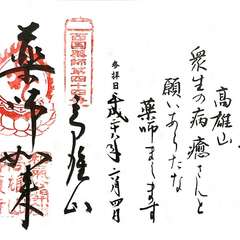 高雄山
衆生の病癒さんと
願いあらたな
薬師まします
参拝日平成二十八年二月四日
西国薬師第四十四番
高雄山
薬師如来